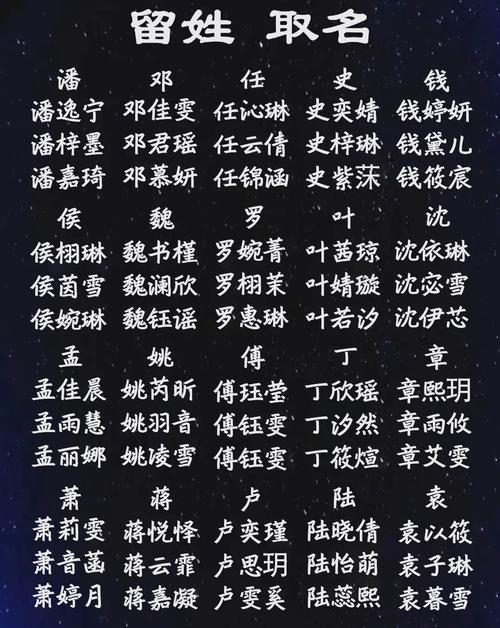 留姓 取名
潘 邓 任 史 钱
潘逸宁 邓佳雯 任沁琳 史奕婧 钱婷妍
潘梓墨 邓君瑶 任云倩 史梓琳 钱黛儿
潘嘉琦 邓慕妍 任锦涵 史紫莯 钱筱宸
侯 魏 罗 叶 沈
侯栩琳 魏书槿 罗婉菁 叶茜琼 沈依琳
侯茵雪 魏澜欣 罗栩茉 叶婧璇 沈宓雪
侯婉琳 魏钰谣 罗惠琳 叶若汐 沈伊芯
孟 姚 傅 丁 章
孟佳晨 姚芮昕 傅珏莹 丁欣瑶 章熙玥
孟雨慧 姚羽音 傅钰雯 丁汐然 章雨攸
孟丽娜 姚凌雪 傅钰雯 丁筱煊 章艾雯
萧 蒋 卢 陆 袁
萧莉雯 蒋悦怿 卢奕瑾 陆晓倩 袁以筱
萧音菡 蒋云霏 卢思玥 陆怡萌 袁子琳
萧婷月 蒋嘉凝 卢雯奚 陆蕊熙 袁暮雪